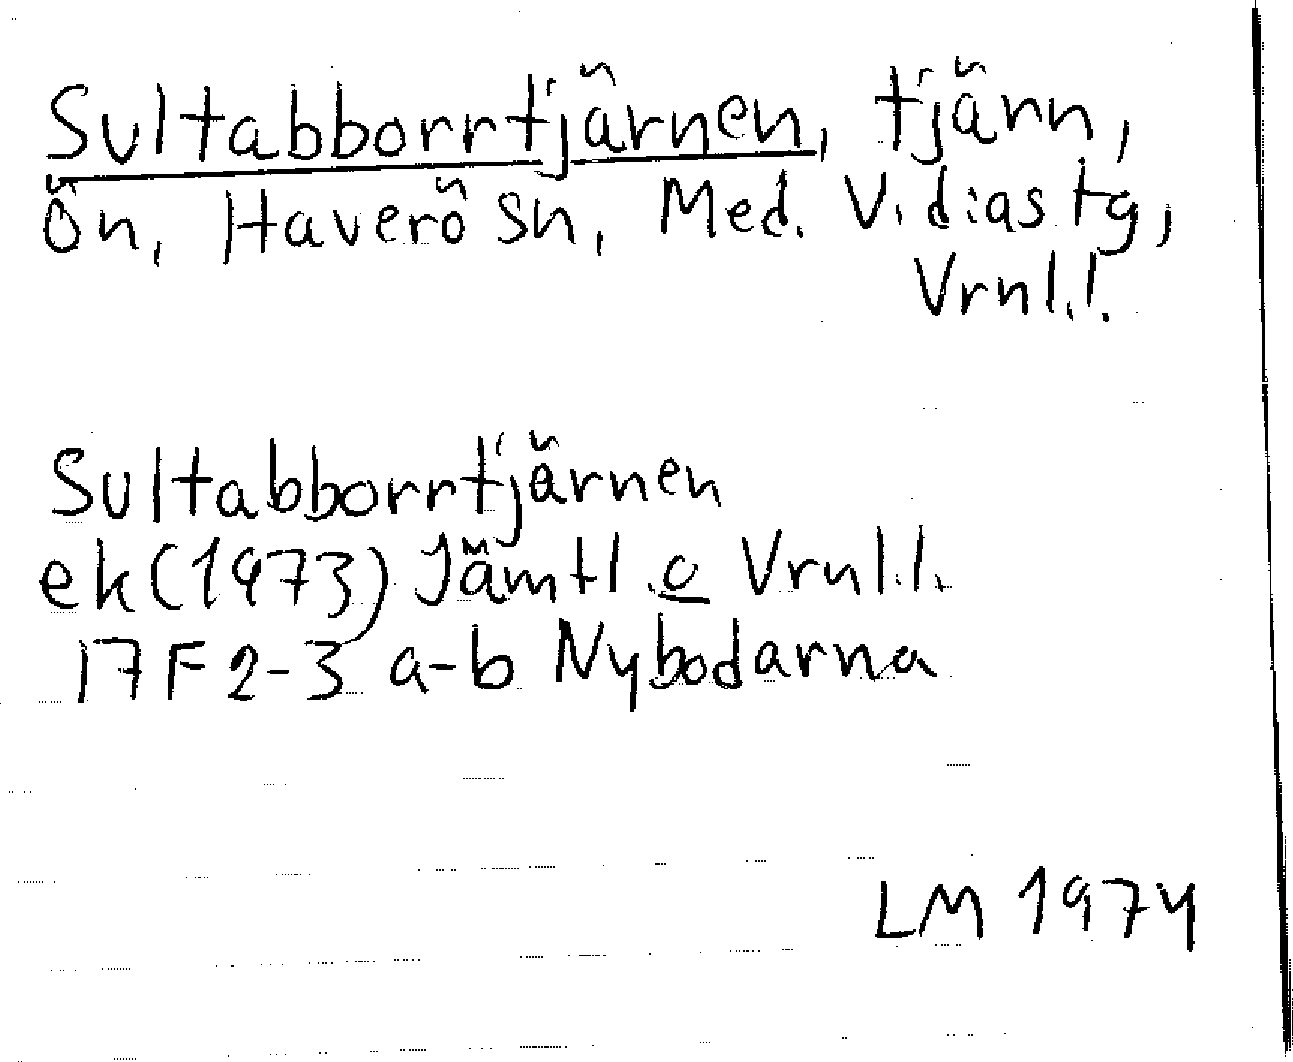 Sultabborrtjärnen, tjärn,
Ön, Haverö sn, Med. V. diastg,
Vrnl.l.
Sultabborrtjärnen
ek (1973) Jämtl. o Vrnl.l.
17 F 2-3 a-b Nybodarna
LM 1974